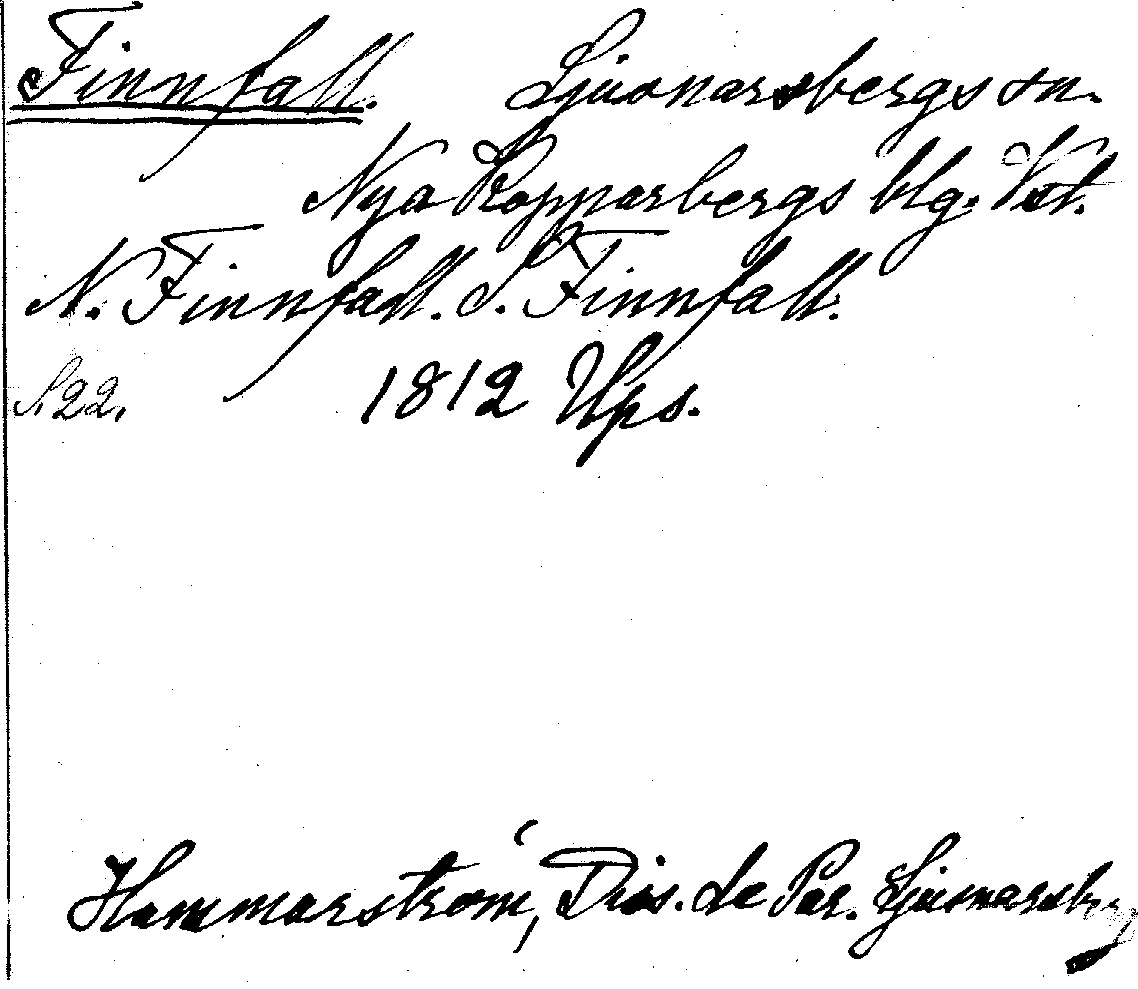 Finnfall. Ljusnarsbergs sn.
Nya Kopparbergs blg. Vstm.
N. Finnfall. S. Finnfall.
S. 22. 1812 Ups.
Hammarström, Dis. de Par. Ljusnarsberg